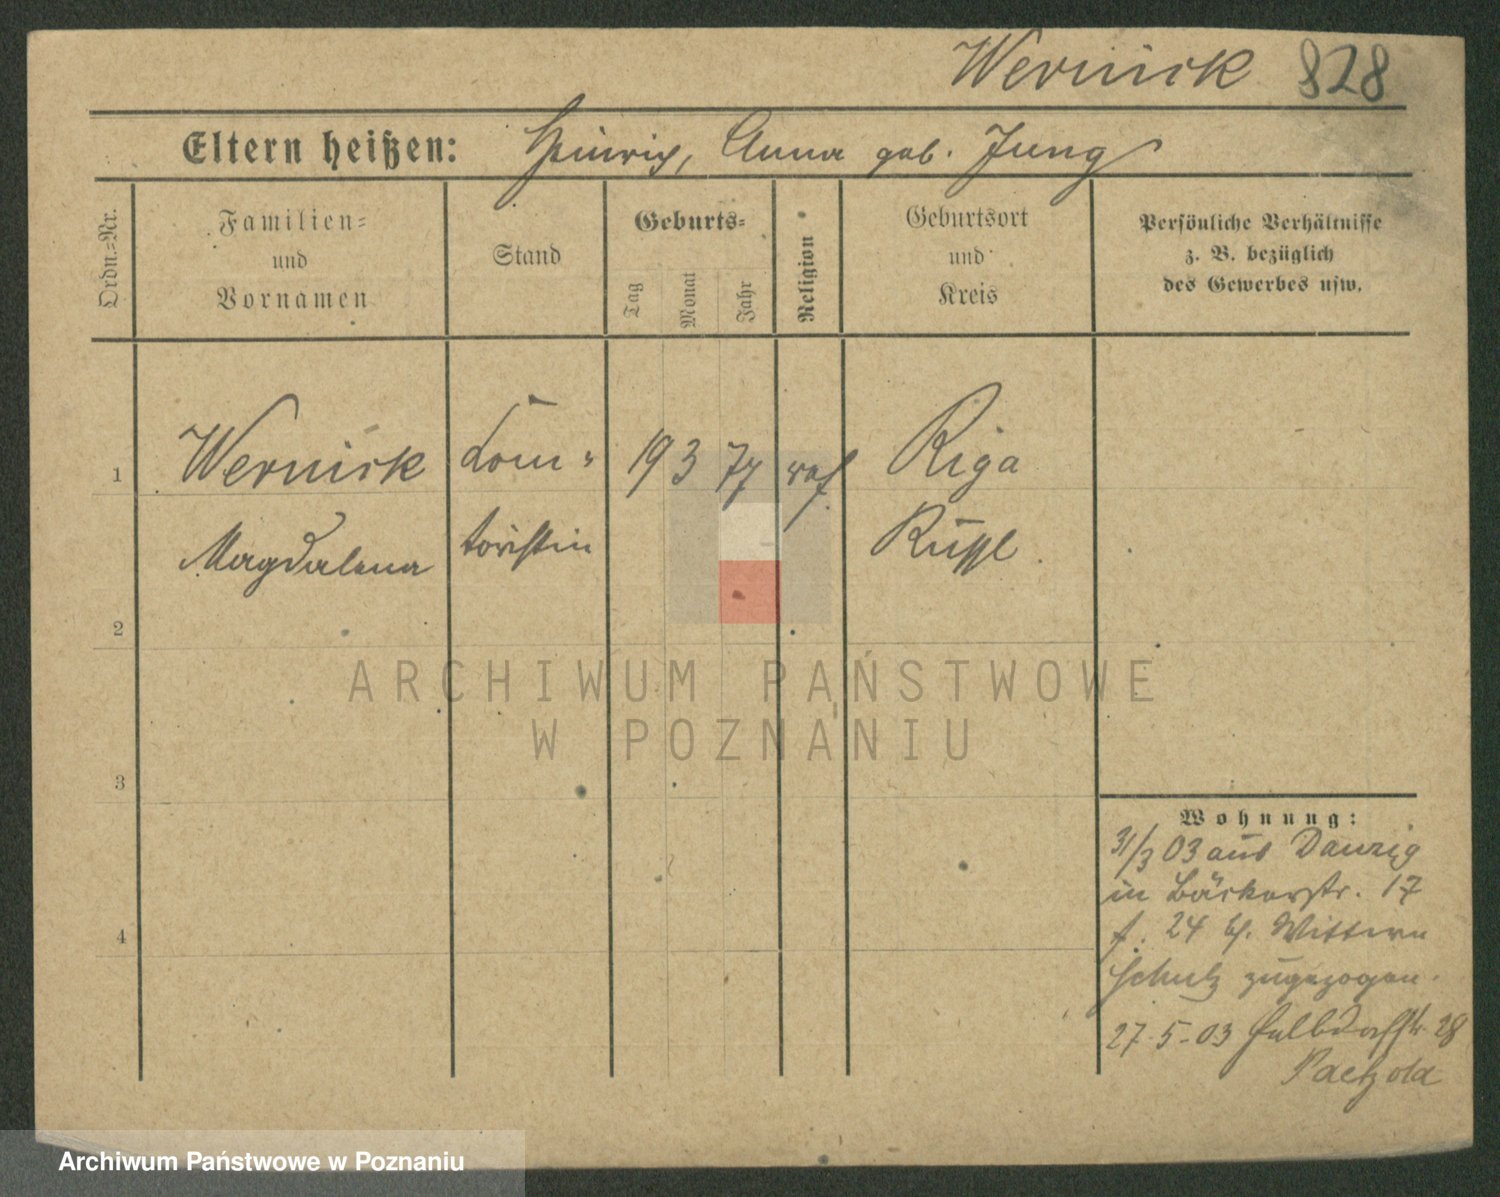 Wernick 828
Eltern heißen: Heinrich, Anna geb. Jung
Ordn.-Nr.
Familien-
und
Vornamen
Stand
Geburts-
Tag
Monat
Jahr
Religion
Geburtsort
und
Kreis
Persönliche Verhältnisse
z. B. bezüglich
des Gewerbes usw.
1
Wernick Kon- 19 3 77 ref. Riga
Magdalena toristin Rußl.
2
3
4
ARCHIWUM PAŃSTWOWE
W POZNANIU
Wohnung:
31/3 03 aus Danzig
in Bäckerstr. 17
24 b.
Schulz zugezogen.
27.5.03 28
Paetzold
Archiwum Państwowe w Poznaniu